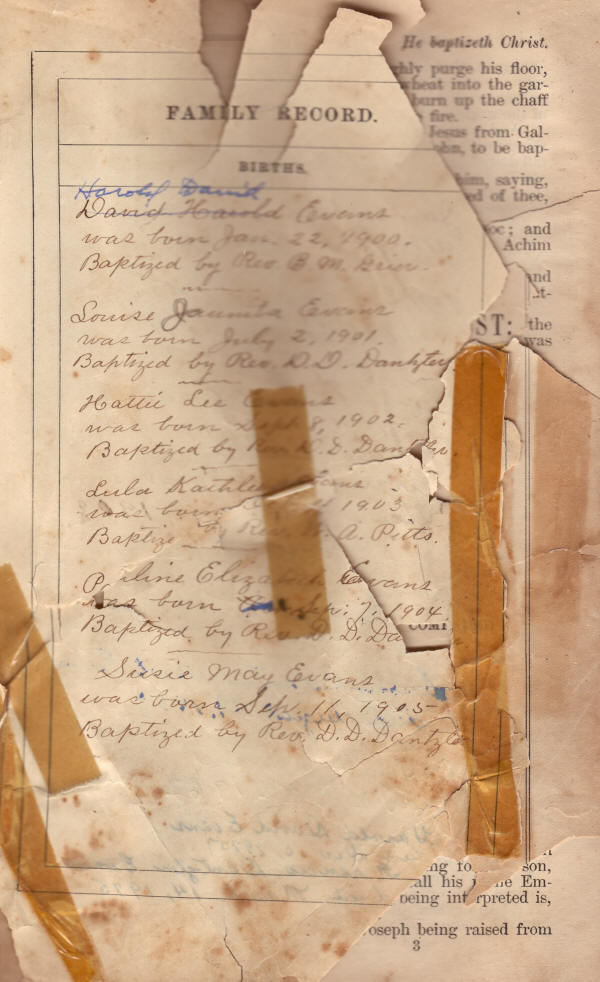 He baptizeth Christ.
ghly purge his floor,
heat into the gar-
burn up the chaff
fire.
Jesus from Gal-
ohn, to be bap-
him, saying,
ed of thee,
oc; and
Achim
and
t-
ST: the
was
FAMILY RECORD.
BIRTHS.
Harold David
David Harold Evans
was born Jan. 22, 1900.
Baptized by Rev. B. M. Grier.
Louise Jaunita Evans
was born July 2, 1901.
Baptized by Rev. D. D. Dantzler
Hattie Lee Evans
was born Sept 8, 1902.
Baptized by Rev. D. D. Dantzler.
Lula Kathleen Evans
was born 1903
Baptize by Rev. W. A. Pitts.
P line Elizabeth Evans
was born Sep. 7, 1904
Baptized by Rev. D. D. Da
COMP
Susie May Evans
was born Sep. 11, 1905
Baptized by Rev. D. D. Dantzler
ng to son,
all his Em-
being int rpreted is,
oseph being raised from
3